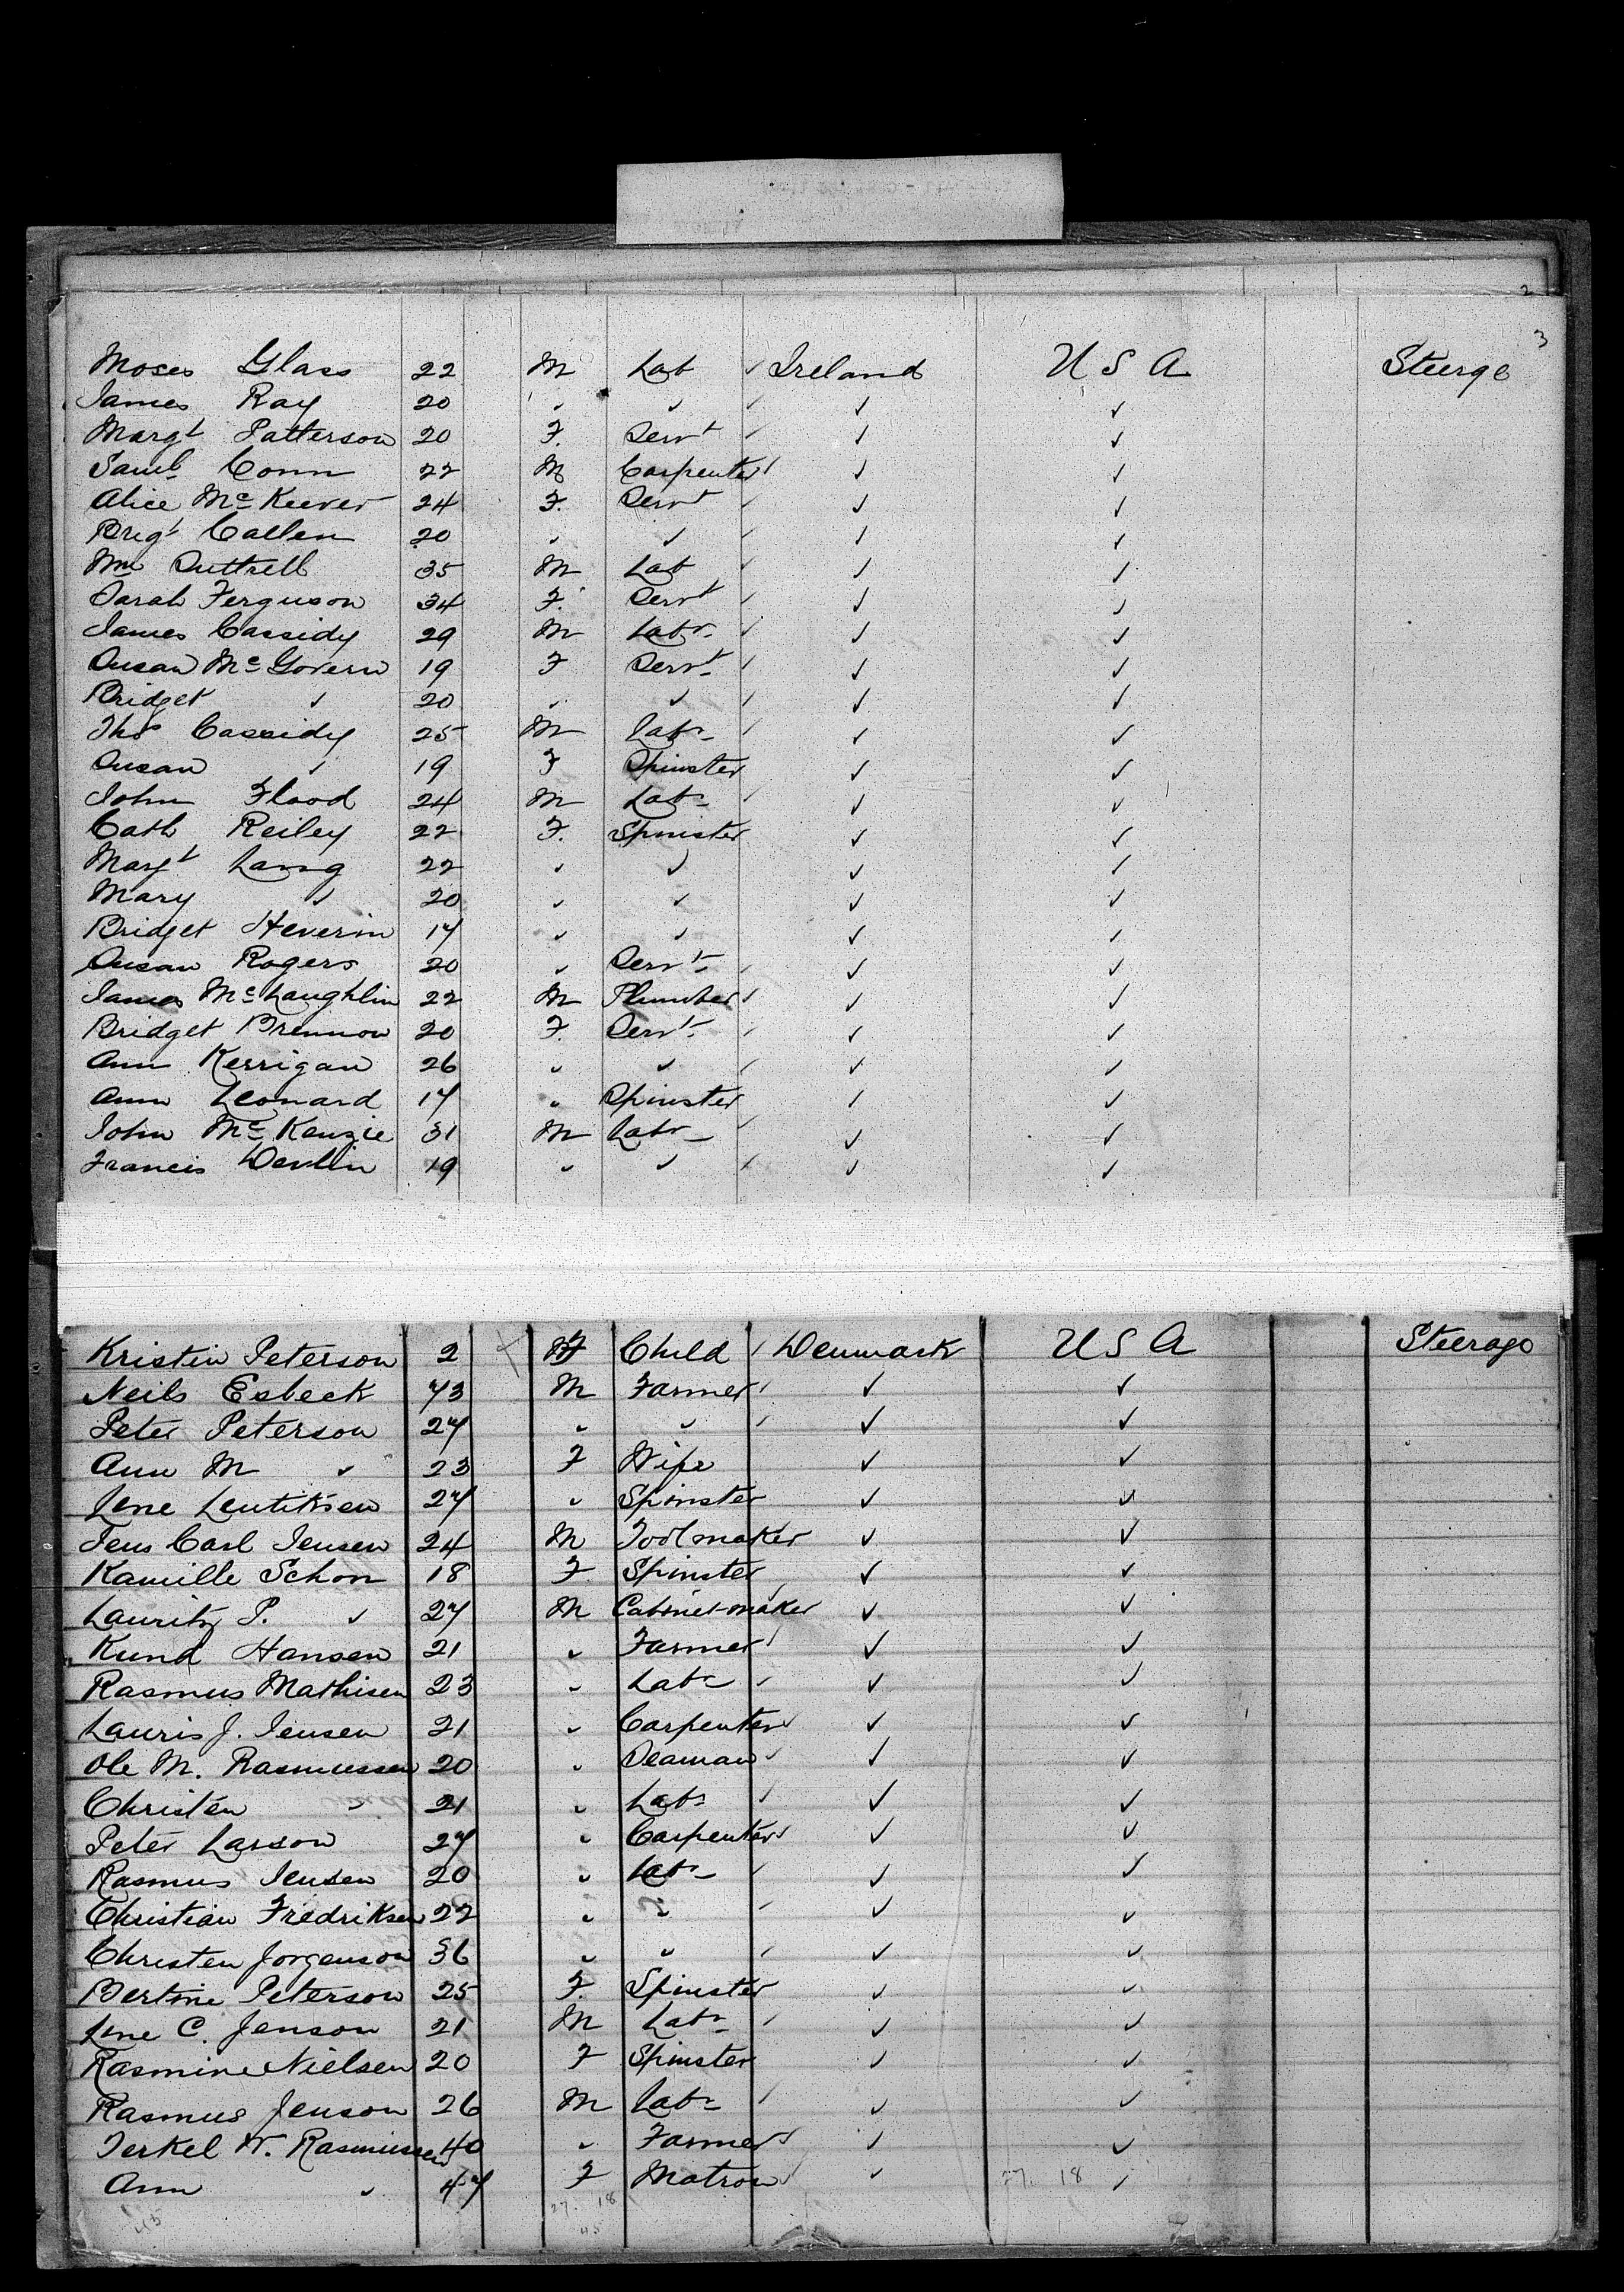 2
3
Moses Glass 22 M Lab ✓ Ireland U S A Steerge
James Ray 20 " " ✓ ✓ ✓
Margt Patterson 20 F. Servt ✓ ✓ ✓
Saml Conn 22 M Carpenter ✓ ✓ ✓
Alice McKeever 24 F. Servt ✓ ✓ ✓
Brigt Callen 20 " " ✓ ✓ ✓
Wm Suttrell 35 M Lab ✓ ✓ ✓
Sarah Ferguson 34 F. Servt ✓ ✓ ✓
James Cassidy 29 M Labr ✓ ✓ ✓
Susan McGovern 19 F Servt ✓ ✓ ✓
Bridget " 20 " " ✓ ✓ ✓
Thos Cassidy 25 M Labr ✓ ✓ ✓
Susan " 19 F Spinster ✓ ✓
John Flood 24 M Labr ✓ ✓ ✓
Cath Reiley 22 F. Spinster ✓ ✓
Margt Lang 22 " " ✓ ✓
Mary " 20 " " ✓ ✓
Bridget Heverin 17 " " ✓ ✓
Susan Rogers 20 " Servt ✓ ✓ ✓
James McLaughlin 22 M Plumber ✓ ✓ ✓
Bridget Brennon 20 F. Servt ✓ ✓
Ann Kerrigan 26 " " ✓ ✓ ✓
Ann Leonard 17 " Spinster ✓ ✓
John McKenzie 31 M Labr ✓ ✓ ✓
Francis Devlin 19 " " ✓ ✓ ✓
Kristin Peterson 2 F Child ✓ Denmark U S A Steerage
Neils Esbeck 73 M Farmer ✓ ✓ ✓
Peter Peterson 27 " " ✓ ✓ ✓
Ann M " 23 F Wife ✓ ✓
Lene Lentiksen 27 " Spinster ✓ ✓
Jens Carl Jensen 24 M Toolmaker ✓ ✓
Kamille Schon 18 F Spinster ✓ ✓
Lauritz P. " 27 M Cabinet-maker ✓ ✓
Kund Hansen 21 " Farmer ✓ ✓ ✓
Rasmus Mathisen 23 " Labr ✓ ✓ ✓
Lauris J. Jensen 21 " Carpenter ✓ ✓ ✓
Ole M. Rasmussen 20 " Seaman ✓ ✓ ✓
Christen " 21 " Labr ✓ ✓ ✓
Peter Larson 27 " Carpenter ✓ ✓ ✓
Rasmus Jensen 20 " Labr ✓ ✓ ✓
Christian Fredriksen 22 " " ✓ ✓ ✓
Christen Jorgenson 36 " " ✓ ✓ ✓
Bertine Peterson 25 F. Spinster ✓ ✓
Lene C. Jenson 21 M Labr ✓ ✓ ✓
Rasmine Nielsen 20 F Spinster ✓ ✓
Rasmus Jenson 26 M Labr ✓ ✓ ✓
Terkel W. Rasmussen 40 " Farmer ✓ ✓ ✓
Ann " 47 F Matron ✓ ✓ 27. 18 ✓
45 27. 18
45